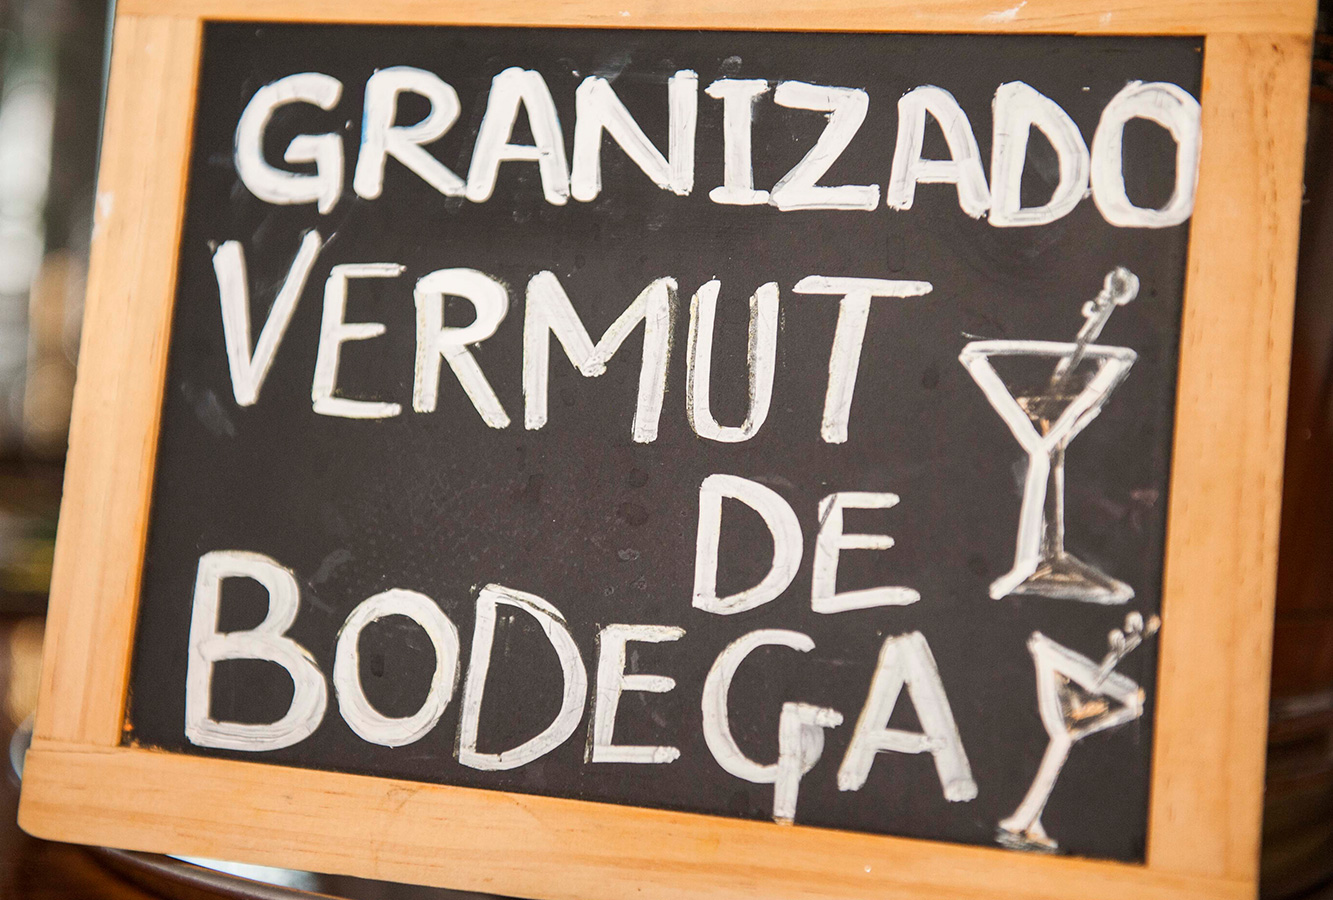 GRANIZADO
VERMUT
DE
BODEGA